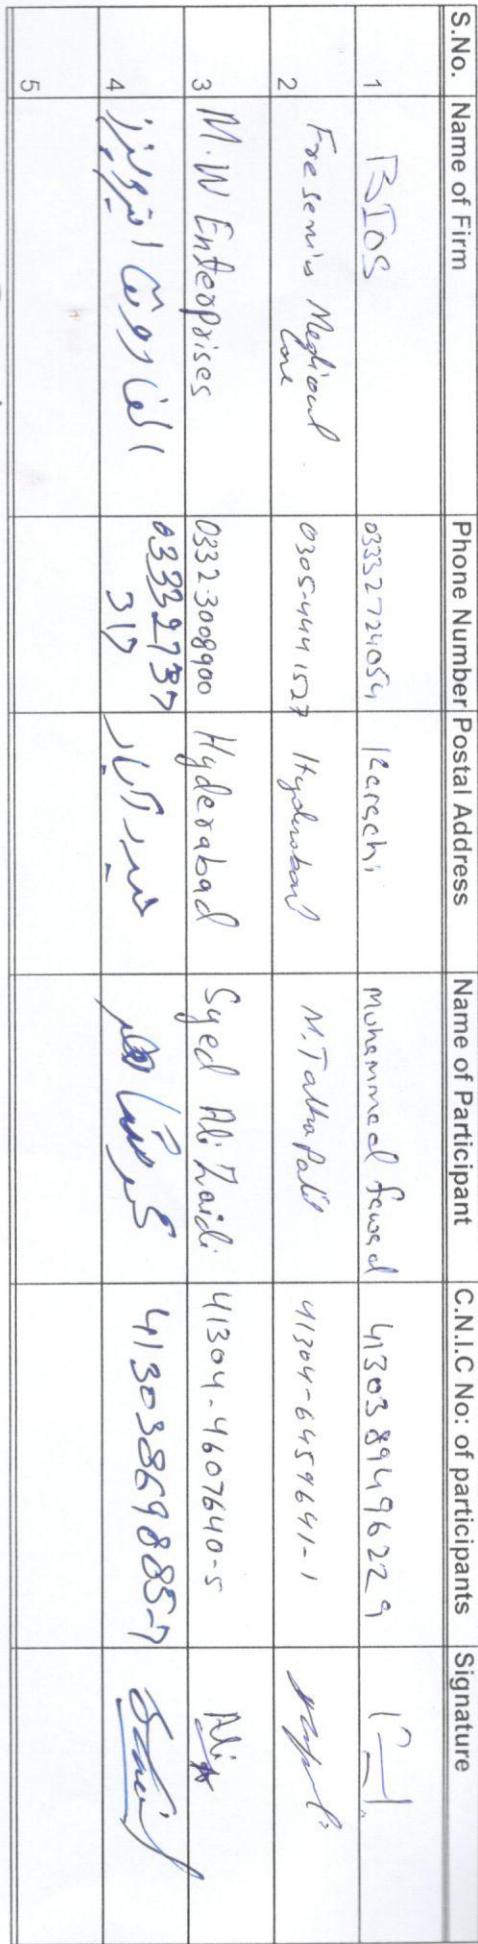 S.No. Name of Firm Phone Number Postal Address Name of Participant C.N.I.C No: of participants Signature
1 BIOS 03332724054 Karachi Muhammad Fawad 4130389496229
2 Fresenius Medical Care 0305-4441527 Hyderabad M. Talha 41304-6459641-1
3 M.W Enterprises 0332-3008900 Hyderabad Syed Ali Zaidi 41304-4607640-5 Ali
4 الفاروق انٹرپرائیزز 03332737 حیدرآباد 41303869885-7
317
5